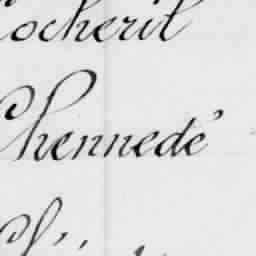 Cocheril
Chennedé